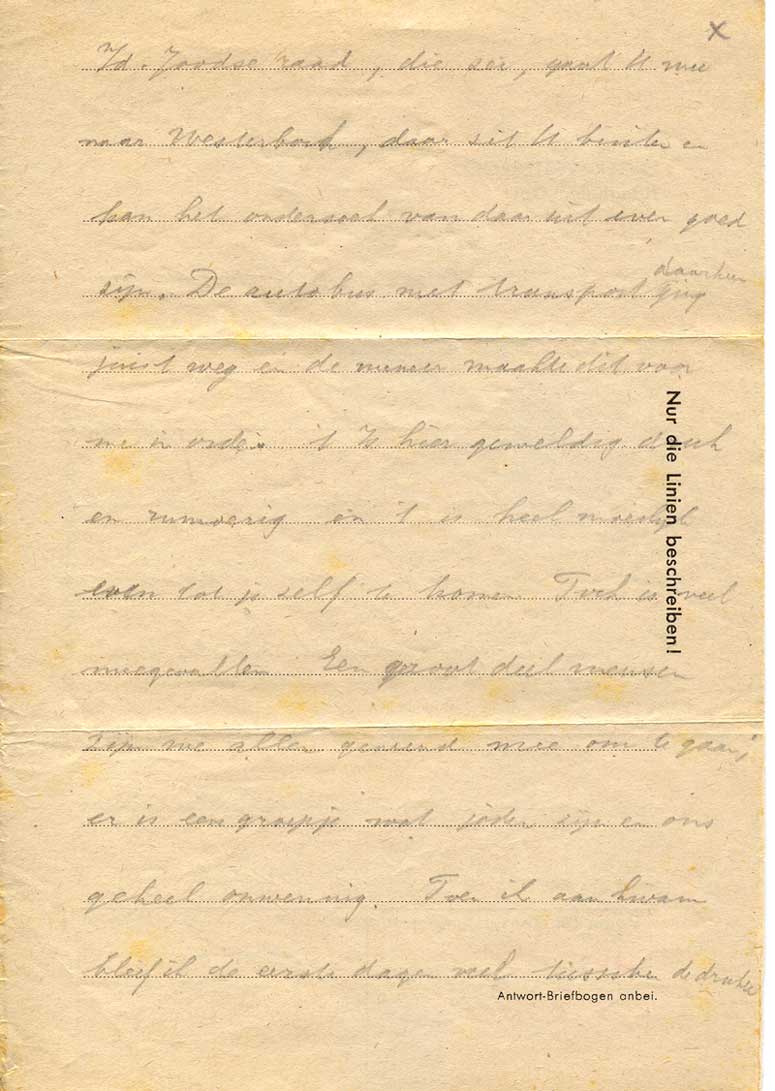 x
v/d. Joodse raad, die zei, gaat U mee
naar Westerbork, daar zit U buiten en
kan het onderzoek van daar uit even goed
zijn. De autobus met transport ging daarheen
juist weg en de meneer maakte dit voor
me in orde. 't Is hier geweldig druk
en rumoerig en 't is heel moeilijk
even tot je self te komen. Toch is veel
meegevallen. Een groot deel mensen
zijn we allen gewend mee om te gaan,
er is een groepje wat joden zijn en ons
geheel onwennig. Toen ik aan kwam
bleef ik de eerste dagen veel tusschen de drukte
Nur die Linien beschreiben!
Antwort-Briefbogen anbei.